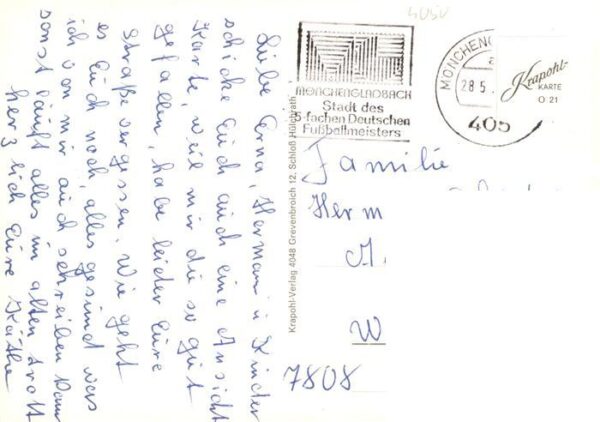 Liebe Erna, Hermann u Kinder
schicke Euch auch eine Ansicht
Karte, weil mir die so gut
gefallen, habe leider Eure
Straße vergessen. Wie geht
es Euch noch, alles gesund was
ich von mir auch schreiben kann
sonst läuft alles im alten trott
herzlich Eure Käthe
Krapohl-Verlag 4048 Grevenbroich 12, Schloß Hülchrath
4050
MÖNCHENGLADBACH
Stadt des
5-fachen Deutschen
Fußballmeisters
MÖNCHENG
28.5.
405
Krapohl-
KARTE
O 21
Familie
Herm
W
7808